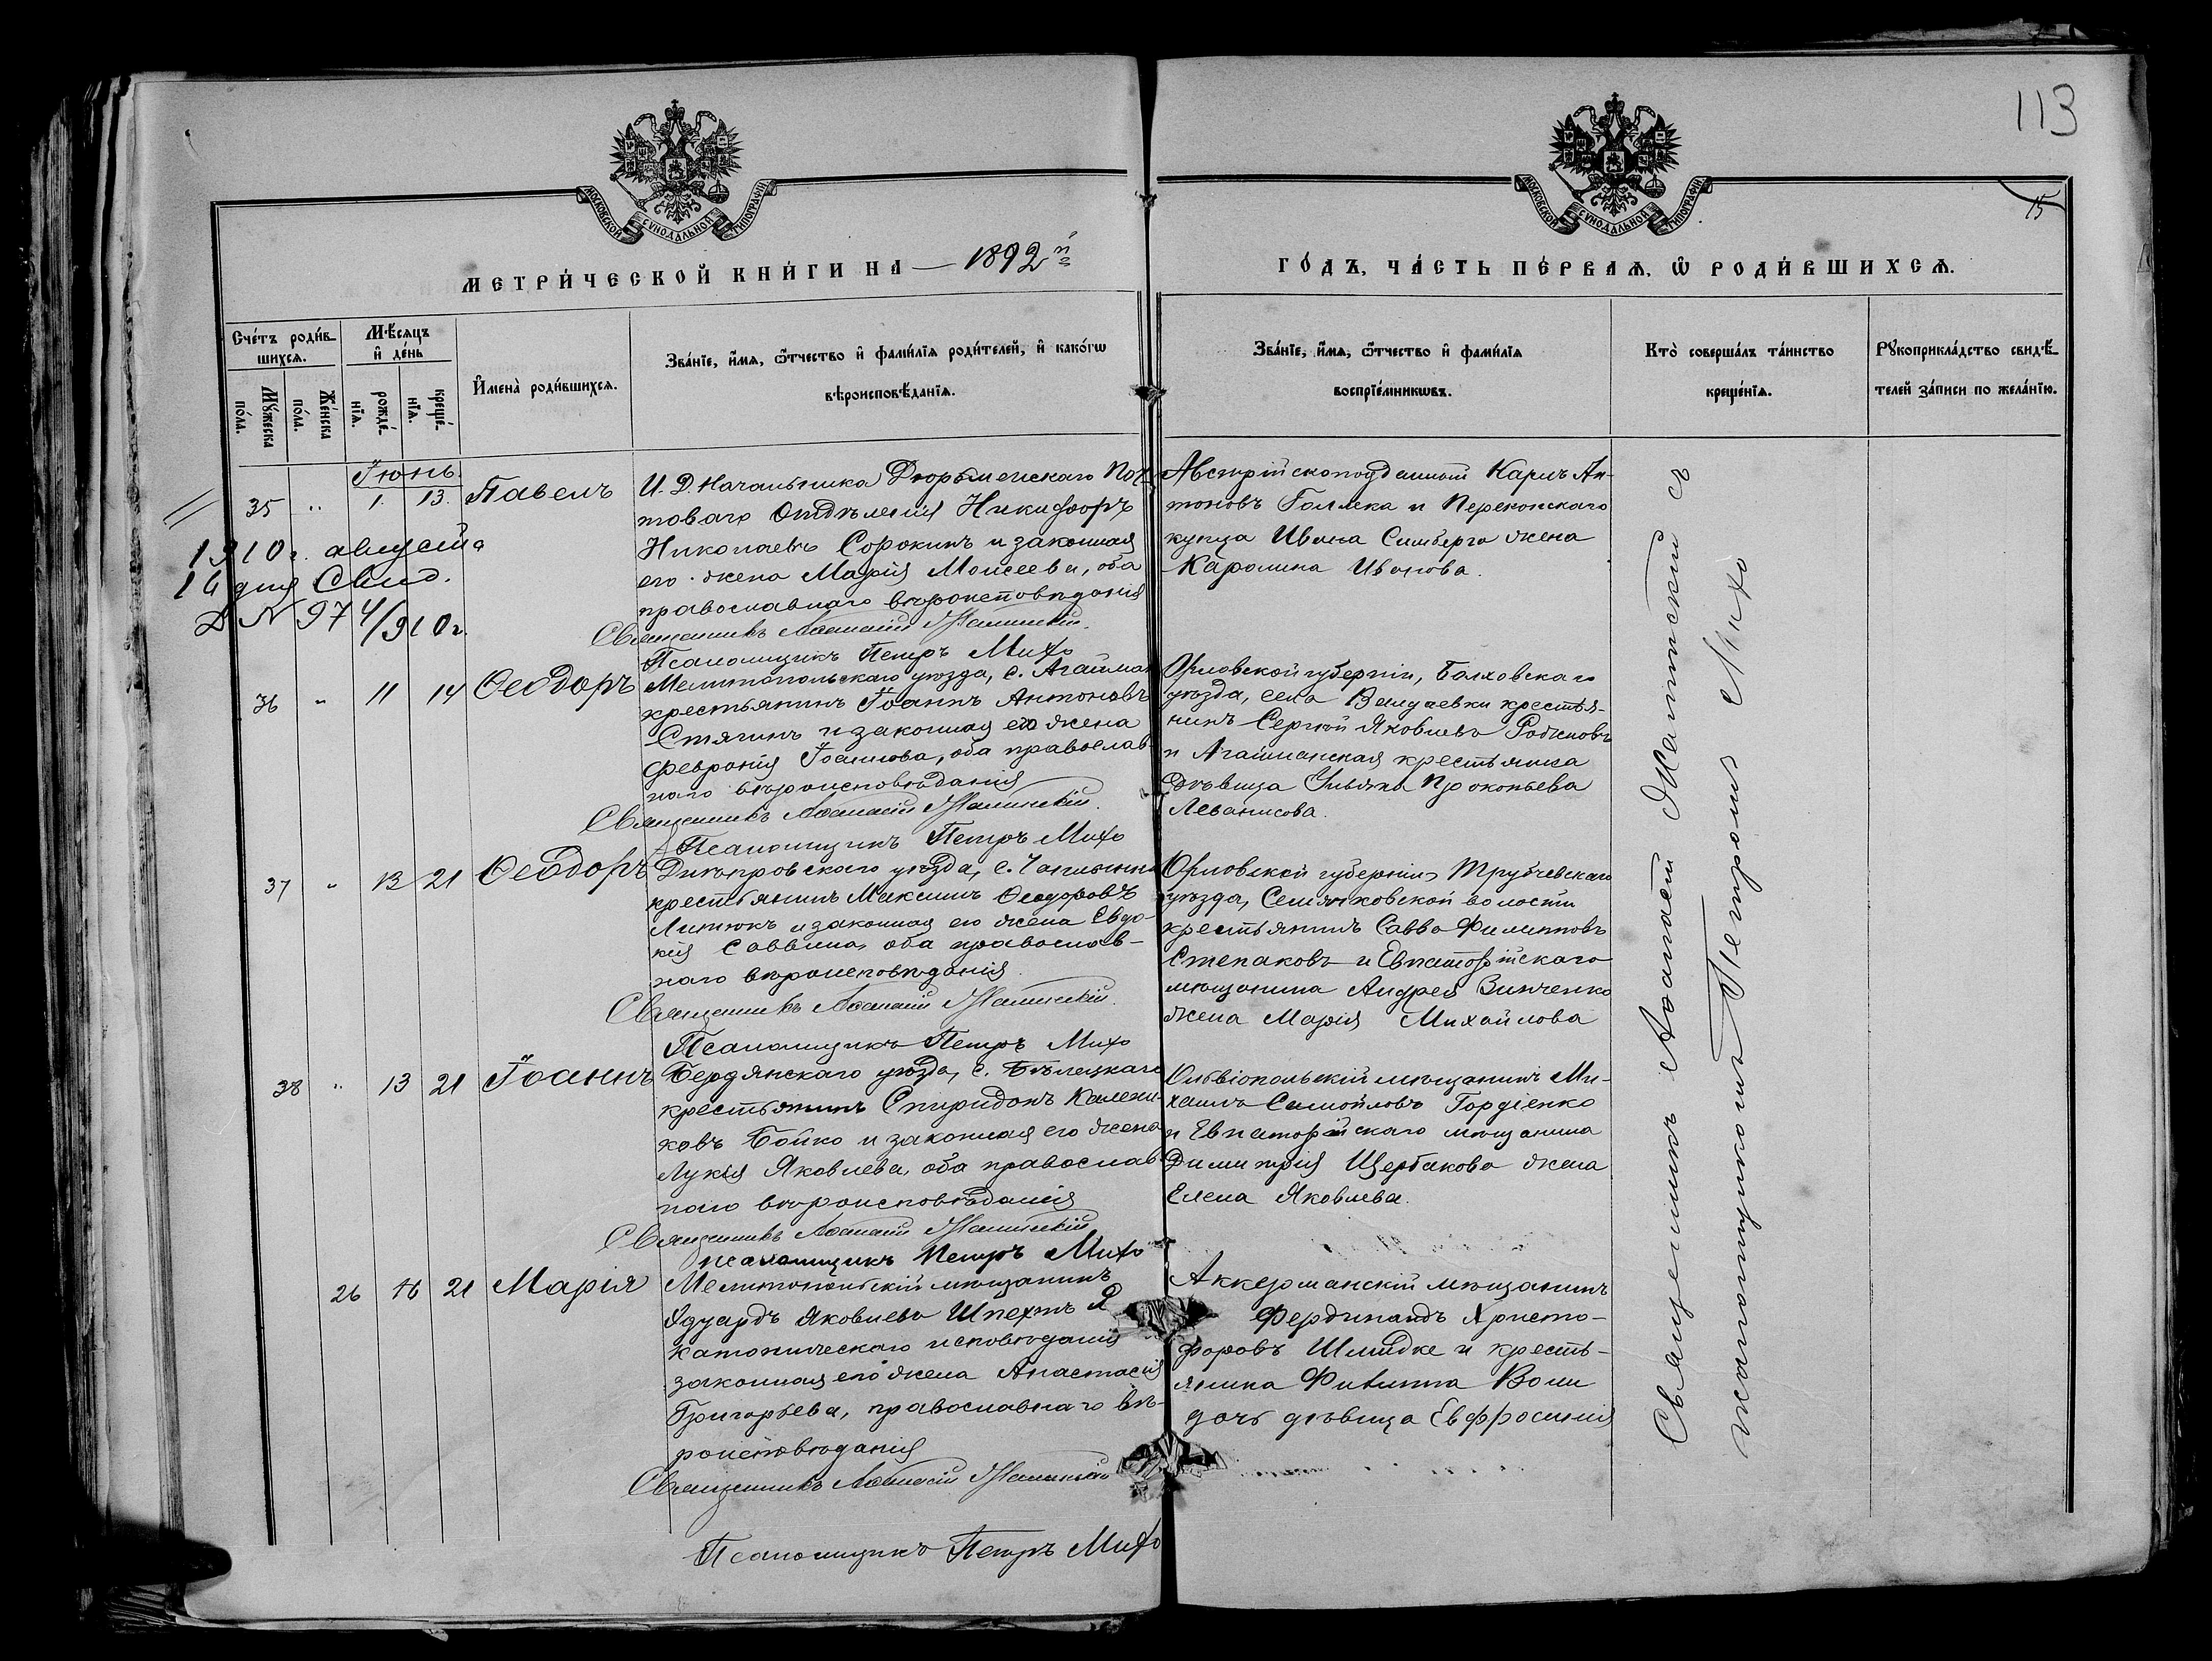 113
15
МОСКОВСКОЙ СѴНОДАЛЬНОЙ ТИПОГРАФІИ
МОСКОВСКОЙ СѴНОДАЛЬНОЙ ТИПОГРАФІИ
МЕТРИ́ЧЕСКОЙ КНИ́ГИ НА 1892й
ГО́ДЪ, ЧА́СТЬ ПЕ́РВАѦ, Ѡ РОДИ́ВШИХСѦ.
Сче́тъ роди́в-
шихсѧ.
Мꙋ́жеска
по́ла.
Же́нска
по́ла.
Мѣ́сѧцъ
и҆ де́нь
рожде́-
нїѧ.
креще́-
нїѧ.
И҆мена̀ роди́вшихсѧ.
Зва́нїе, и҆́мѧ, ѻ҆́тчество и҆ фами́лїѧ роди́телей, и҆ како́гѡ
вѣроисповѣ́данїѧ.
Зва́нїе, и҆́мѧ, ѻ҆́тчество и҆ фами́лїѧ
воспрїе́мникѡвъ.
Кто̀ соверша́лъ та́инство
креще́нїѧ.
Рꙋкоприкла́дство свидѣ́-
телей за́писи по жела́нїю.
Іюнь.
35 " 1. 13. Павелъ
И. Д. Начальника Дюрьменскаго Поч-
товаго Отдѣленія Никифоръ
Николаевъ Сорокинъ и законная
его жена Марія Моисеева, оба
православнаго вѣроисповѣданія
Священникъ Аѳанасій Жалинскій.
Псаломщикъ Петръ Михо
Австрійскоподданный Карлъ Ан-
тоновъ Голлека и Перекопскаго
купца Ивана Симберга жена
Каролина Иванова.
1910 г. августа
16 дня Свид.
№ 974/910 г.
36 " 11 14 Ѳеодоръ
Мелитопольскаго уѣзда, с. Агайман
крестьянинъ Іоаннъ Антоновъ
Стягинъ и законная его жена
Февронія Іоаннова, оба православ-
наго вѣроисповѣданія
Священникъ Аѳанасій Жалинскій.
Псаломщикъ Петръ Михо
Орловской губерніи, Болховскаго
уѣзда, села крестья-
нинъ Сергѣй Яковлевъ
и Агайманская крестьянка
дѣвица Ульяна Прокопьева
37 " 13 21 Ѳеодоръ
Днѣпровскаго уѣзда, с. Чаплинки
крестьянинъ Максимъ Ѳеодоровъ
Литюкъ и законная его жена Евдо-
кія Саввина, оба православ-
наго вѣроисповѣданія.
Священникъ Аѳанасій Жалинскій.
Псаломщикъ Петръ Михо
Орловской губерніи, Трубчевскаго
уѣзда, Семячковской волости
крестьянинъ Савва Филипповъ
Степаковъ и Евпаторійскаго
мѣщанина Андрея Зинченко
жена Марія Михайлова
38 " 13 21 Іоаннъ
Бердянскаго уѣзда, с. Бѣлецкаго
крестьянинъ Спиридонъ Калени-
ковъ Бойко и законная его жена
Лукія Яковлева, оба православ-
наго вѣроисповѣданія
Священникъ Аѳанасій Жалинскій
Псаломщикъ Петръ Михо
Ольвіопольскій мѣщанинъ Ми-
хаилъ Самойловъ Гордіенко
и Евпаторійскаго мѣщанина
Димитрія Щербакова жена
Елена Яковлева.
26 16 21 Марія
Мелитопольскій мѣщанинъ
Эдуардъ Яковлевъ Шпехтъ
католическаго исповѣданія
законная его жена Анастасія
Григорьева, православнаго вѣ-
роисповѣданія
Священникъ Аѳанасій Жалинскій
Псаломщикъ Петръ Михо
Аккерманскій мѣщанинъ
Фердинандъ Христо-
форовъ Шмидке и кресть-
янина Филиппа
дочь дѣвица Евфросинія
Священникъ Аѳанасій Жалинскій съ
псаломщикомъ Петромъ Михо